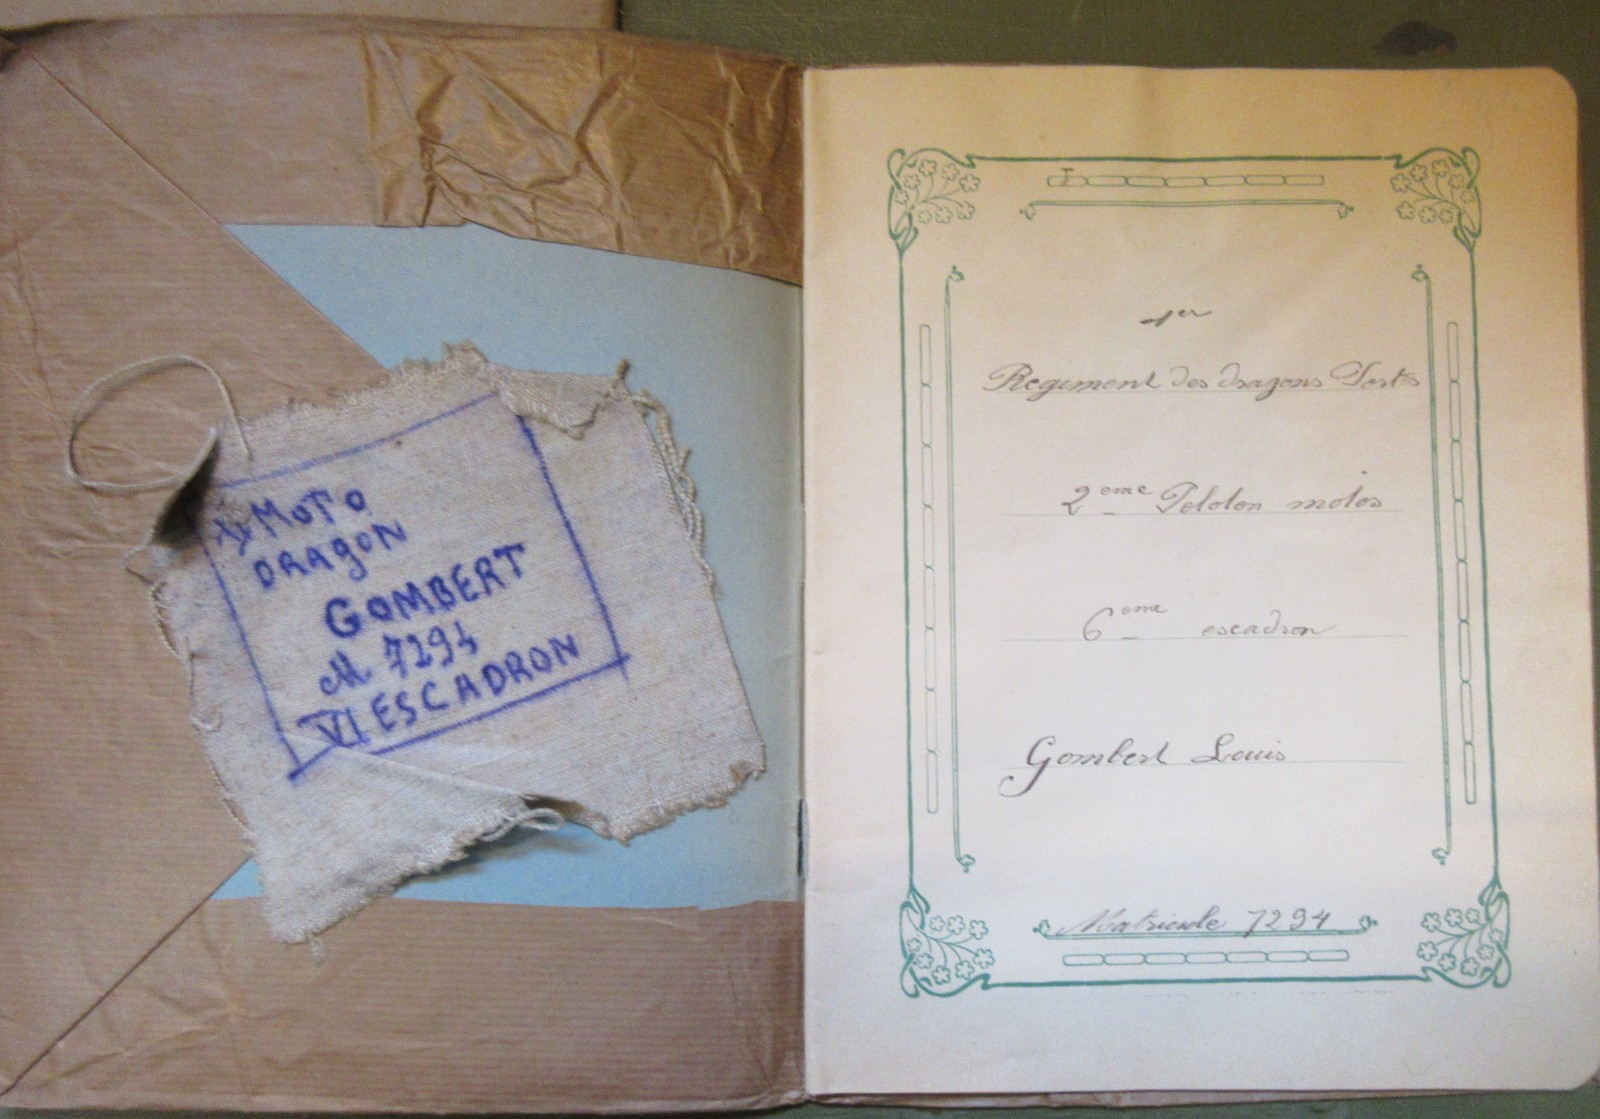 MOTO
DRAGON
GOMBERT
M 7294
VI ESCADRON
1er
Regiment des dragons Portés
2eme Peloton motos
6eme escadron
Gombert Louis
Matricule 7294